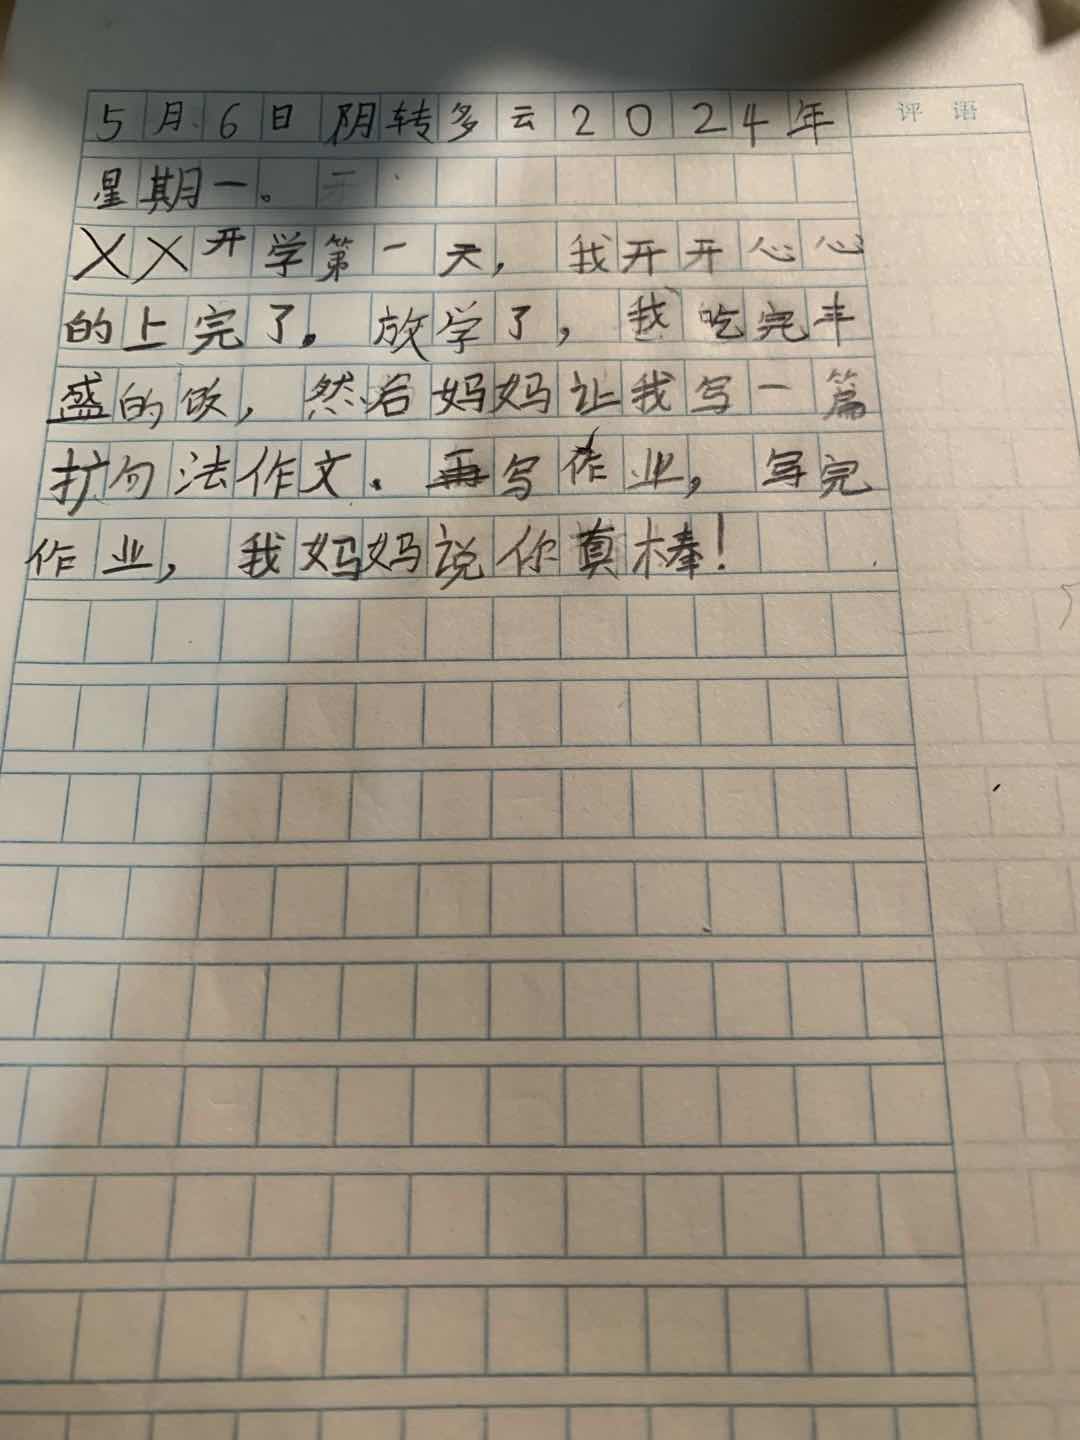 5月6日阴转多云2024年
评语
星期一。
XX开学第一天，我开开心心
的上完了。放学了，我吃完丰
盛的饭，然后妈妈让我写一篇
扩句法作文．再写作业，写完
作业，我妈妈说你真棒！